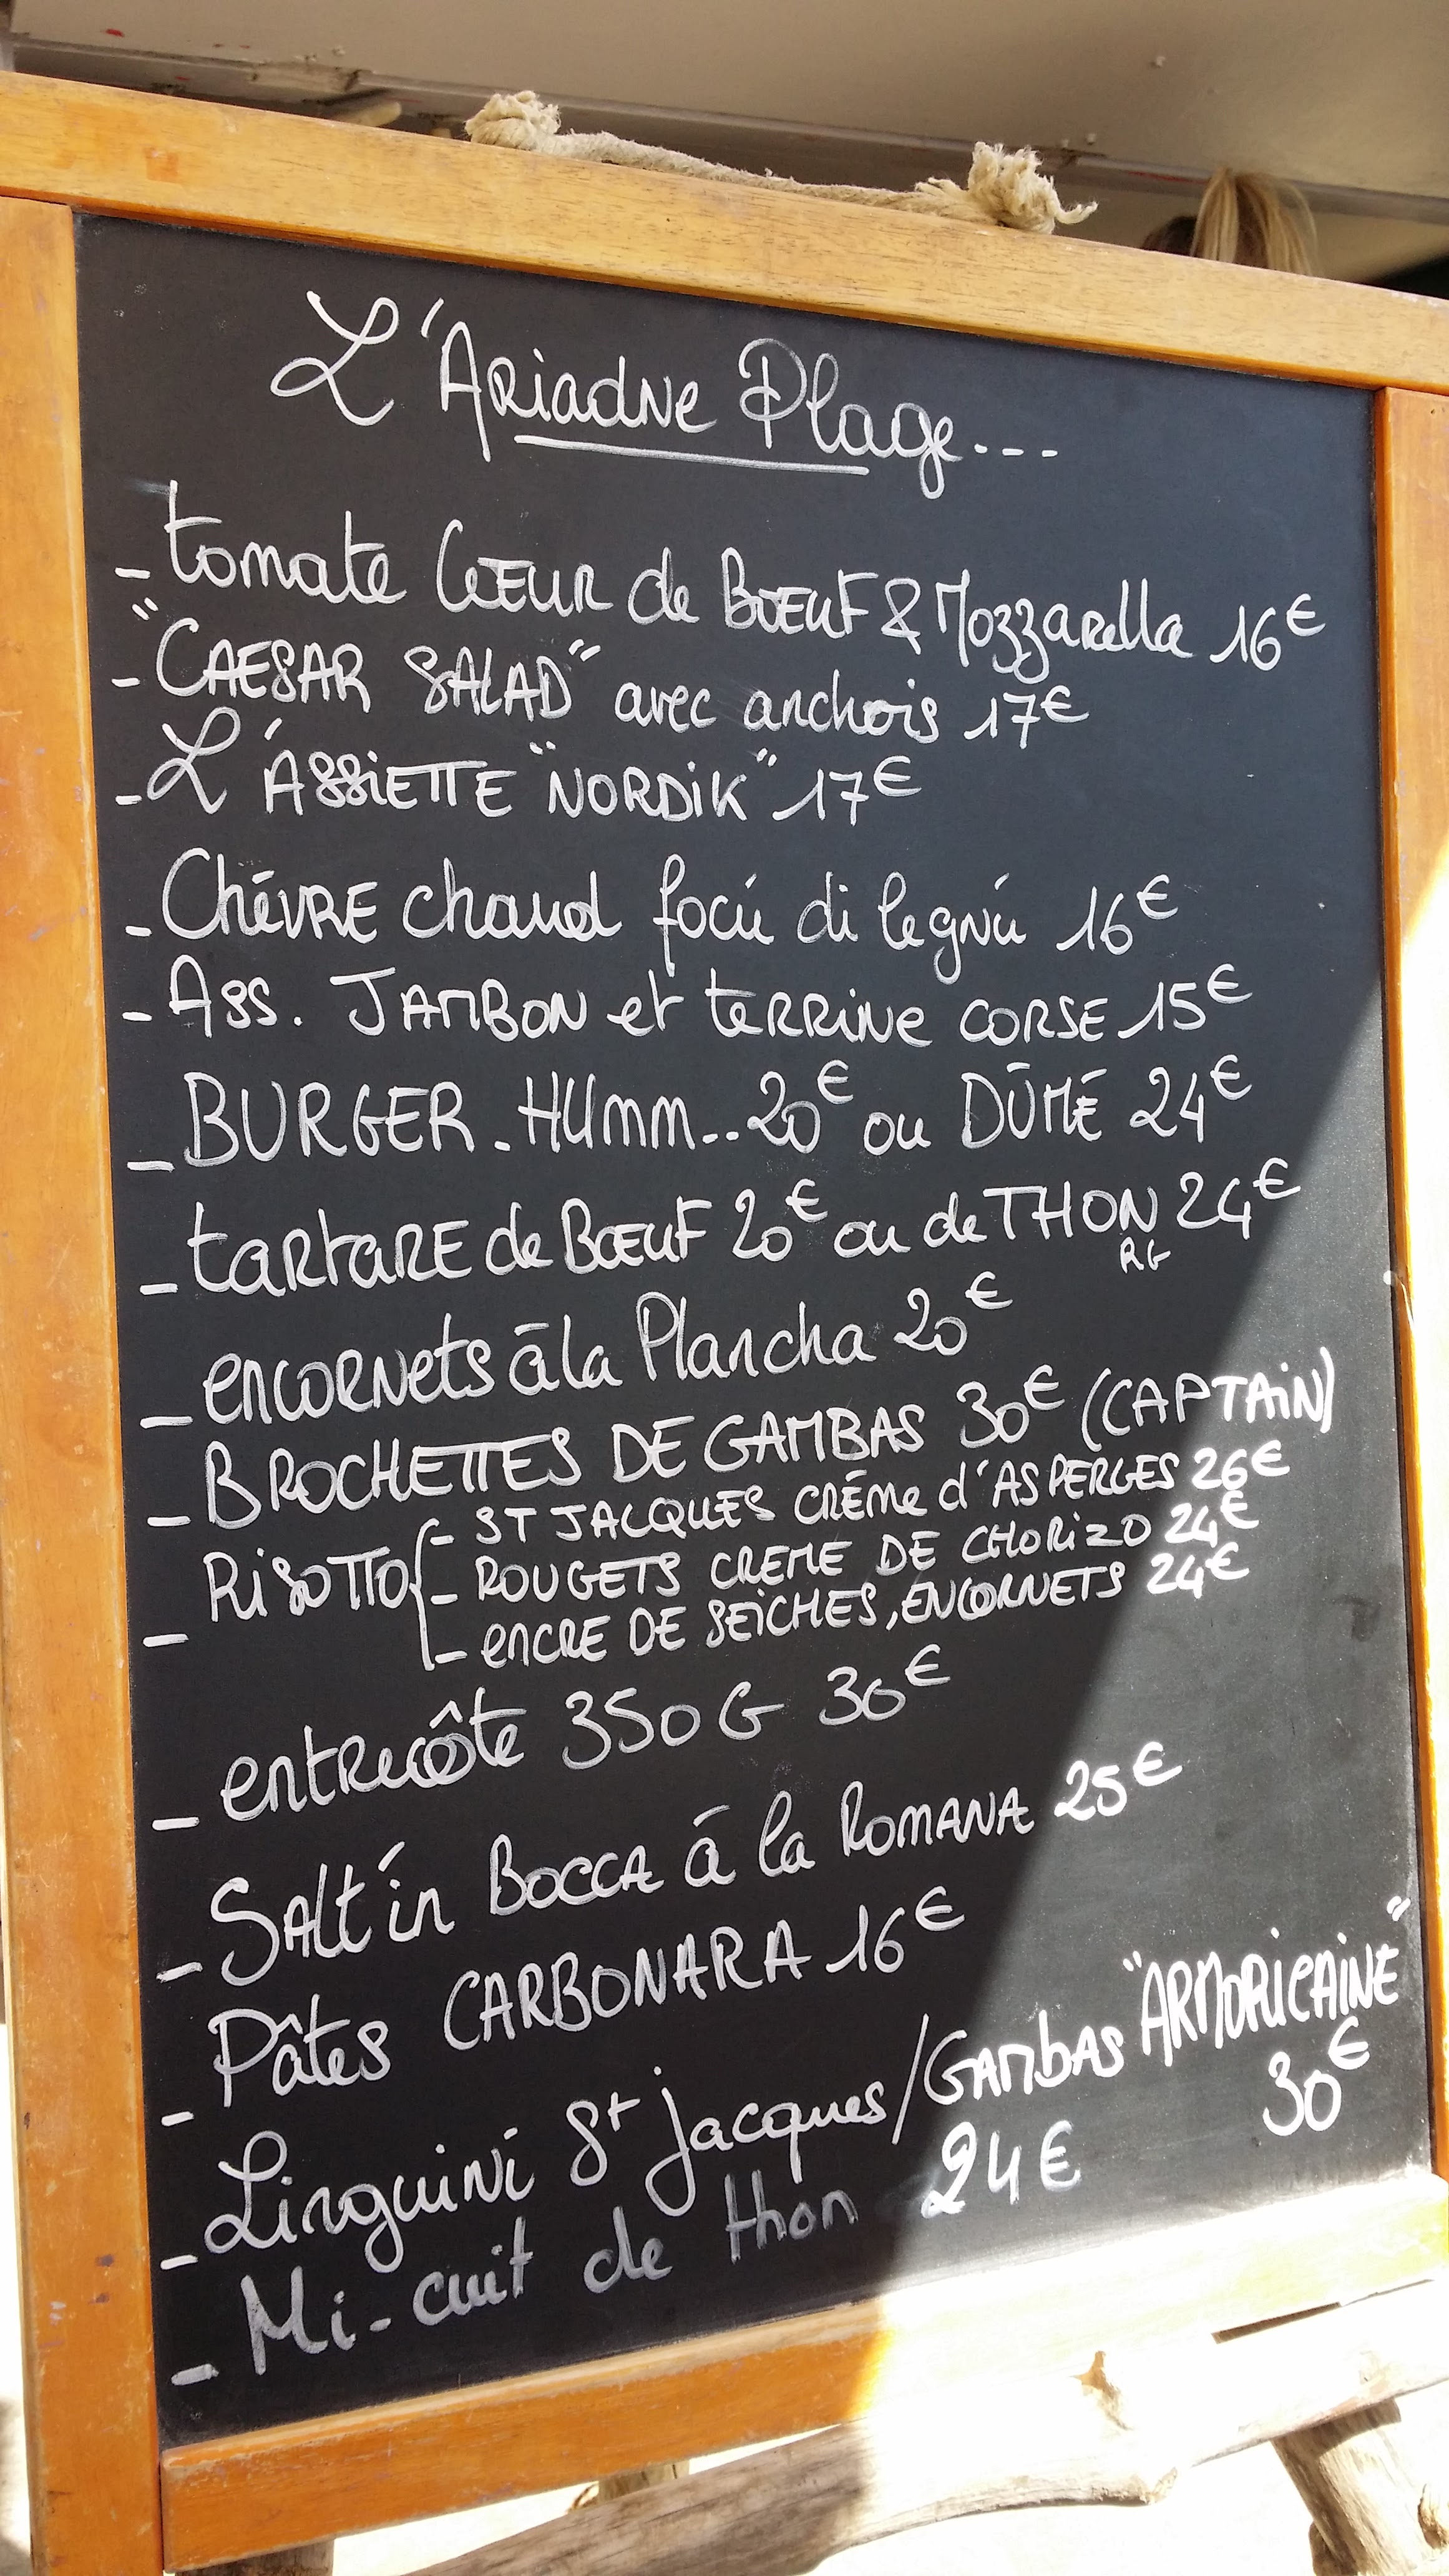 L'Ariadne Plage...
- tomate CŒUR de BŒUF & Mozzarella 16€
- "CAESAR SALAD" avec anchois 17€
- L'ASSiETTE "NORDiK" 17€
- ChèVRE chaud focu di legnu 16€
- Ass. JAMBON et teRRiNe CORSE 15€
- BURGER - HUmm.. 20€ ou DÛMÉ 24€
- tartaRE de BŒUF 20€ ou de THON 24€
RG
- encoRNets à la Plancha 20€
- BROCHETTES DE GAMBAS 30€ (CAPTAiN)
- RiSOTTO - ST JACQUES CRÈMe d'ASPERGES 26€
- ROUGETS CREME DE CHORiZO 24€
- eNCRE DE SEiCHES, ENCORNETS 24€
- entrecôte 350G 30€
- SAlt'in BOCCA à la ROMANA 25€
- Pâtes CARBONARA 16€
- Linguini St jacques/GAMBAS "ARMORiCAiNE" 30€
- Mi-cuit de thon 24€